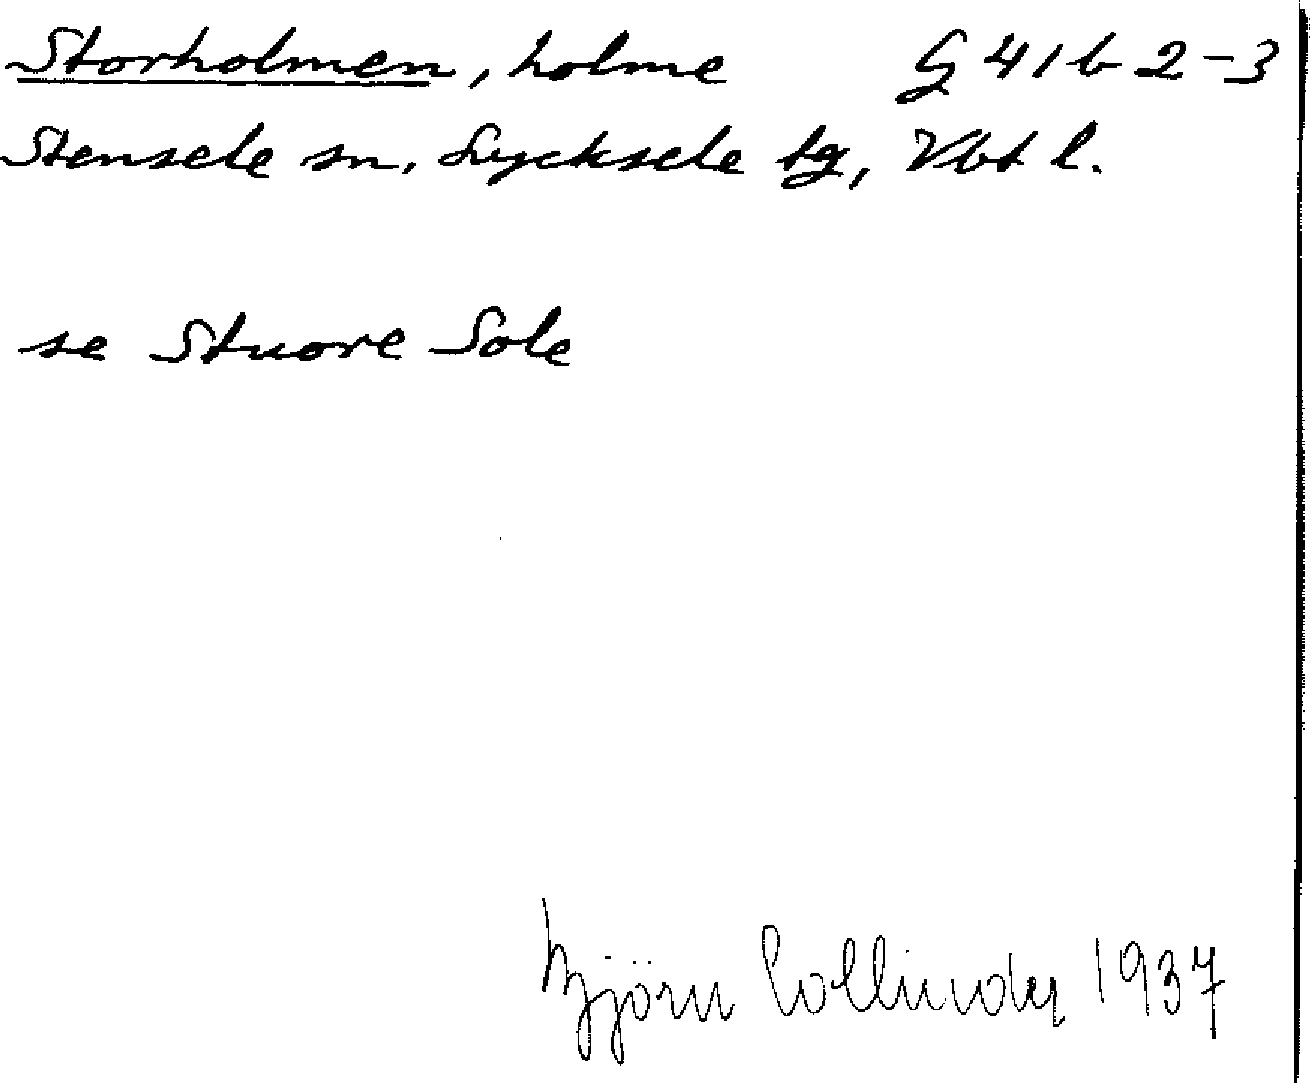 Storholmen, holme G 41 b 2-3
Stensele sn, Lycksele tg, Vbt l.
se Stuore Sole
Björn Collinder 1937